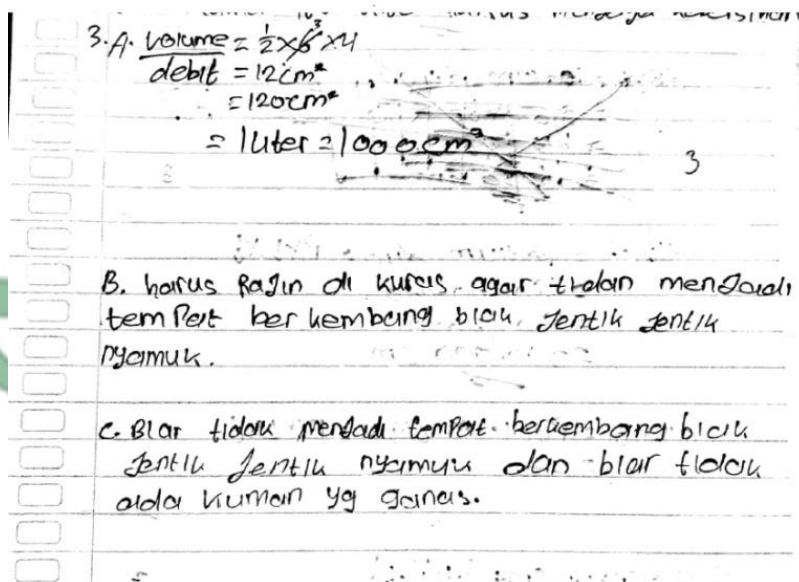 3. A. Volume = 1/2 × 6 3 × 4
debit = 12 cm²
= 120 cm²
= 1 liter = 1000 cm³
3
B. harus Rajin di kuras agar tidan menjadi
tempat ber kembang biak Jentik Jentik
nyamuk.
C. Biar tidak menjadi tempat berkembang biak
Jentik Jentik nyamuk dan biar tidak
ada kuman yg ganas.